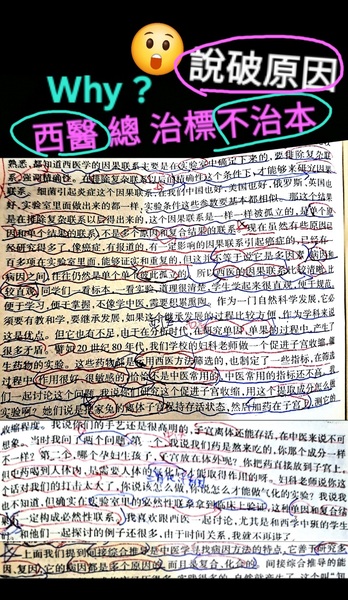 說破原因
Why？
西醫總治標不治本
熟悉，都知道西医学的因果联系主要是在实验室中确定下来的，要排除复杂联
系，强调精确性，在排除复杂联系以后的精确性这个条件下，才能够来研究因果
联系。细菌引起炎症这个因果联系，在我们中国也好，美国也好，俄罗斯，英国也
好，实验室里面做出来的都一样，实验条件这些参数要基本都相似，那这个结果
是在排除复杂联系以后得出来的，这个因果联系是一样一样被孤立的，是单个原
因和单个结果的联系，不是多个原因和复合结果的联系。现在虽然有些原因已
经研究得多了，像癌症，有报道的，有一定影响的因果联系引起癌症的，已经有
有多项在实验里面，能够证实和重复的，但这并不等于说它是多因素
病因之间，往往仍然是单个单个彼此孤立的，所以西医的因果联系比较清晰，比
较直观，同学们一看标本，一看实验，道理很清楚，学生学起来很直观，便于规范，
便于学习，便于掌握，不像学中医，需要积累重陶。作为一门自然科学发展，它必
须要有教和学，要继承发展，如果这个继承发展的过程比较方便，作为学科来说
这是优点。但它也有不足，由于在分析时代，在搞完单因、单果的过程中，产生了
很多矛盾。例如20世纪80年代，我们学校的妇科老师做一个促进子宫收缩，催
生药物的实验。这些药物都是用西方方法筛选的，也制定了一些指标，在筛选
过程中作用很好、很敏感的恰恰不是中医常用的，中医常用的指标还不高，我
们一起讨论这个问题，我说你们研究这个促进子宫收缩，用这个提取成分怎么做
实验啊？她们说是家兔的离体子宫维持存活状态，然后加药在子宫上，测它的
收缩程度。我说你们的手艺还是很高明的，子宫离体还能存活，在中医来说不可
想象。当时我问了两个问题，第一个，我说我们药是熬来吃的，你那个成分一样
不一样？第二个，哪个孕妇生孩子，子宫放在体外呢？你把药直接放到子宫上，
但吃药喝到人体内，是需要人体的气化才能取得作用的呀。妇科老师说你这
个话对我们的打击太大了，你说该怎么做，你说怎么才能做“气化”的实验？我说我
也不知道，但确实在实验室里的必然性联系拿到临床上验证，这种单因和复合结果
不一定构成必然性联系。我喜欢跟西医一起讨论，尤其是和西学中班的学生
们，和他们一起探讨的例子还很多，由于时间关系，我就不再讲了。
上面我们提到间接综合推导是中医学寻找病因方法的特点，它善于研究多
因、复因，它的病因都是多个原因的，而且是复合、化合的，间接综合推导的能